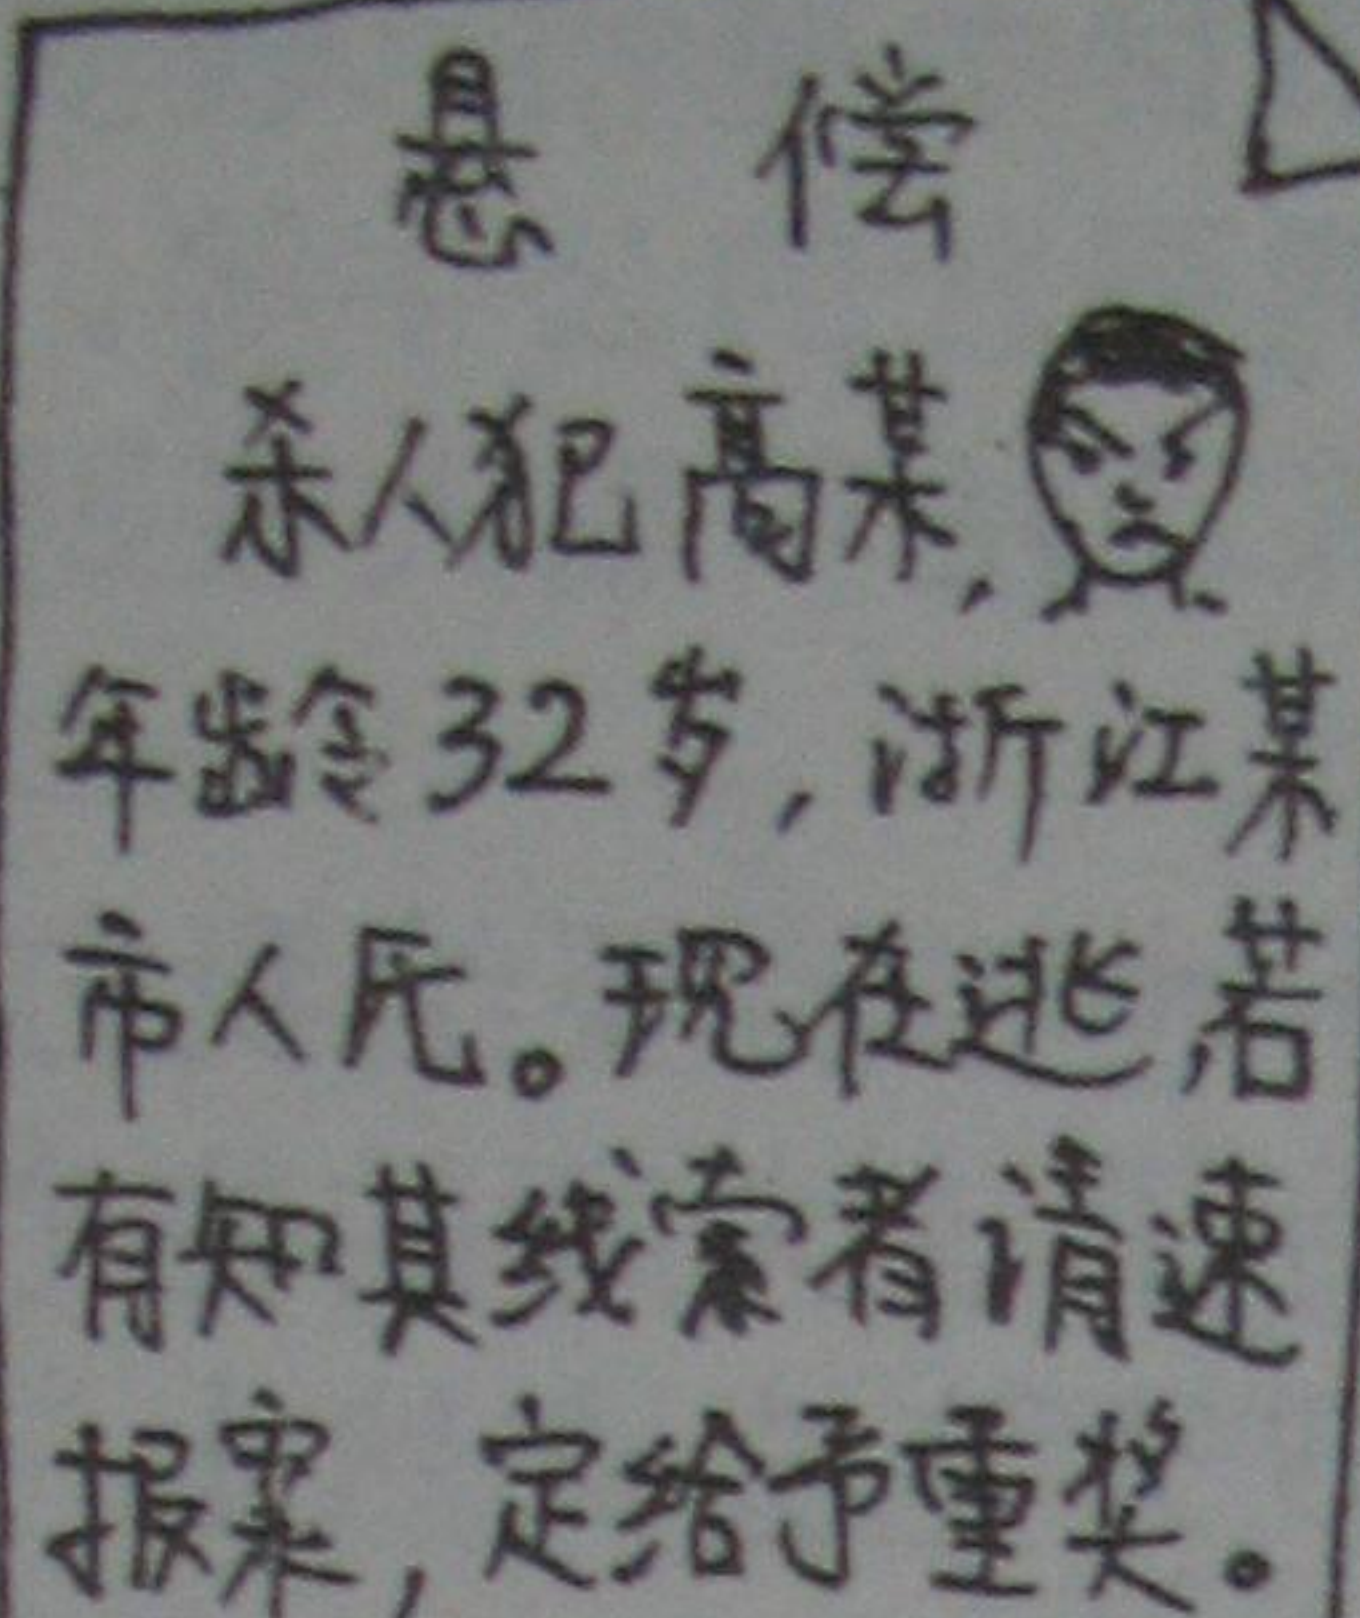 悬 偿
杀人犯高某,
年龄32岁,浙江某
市人氏。现在逃,若
有知其线索者请速
报案,定给予重奖。